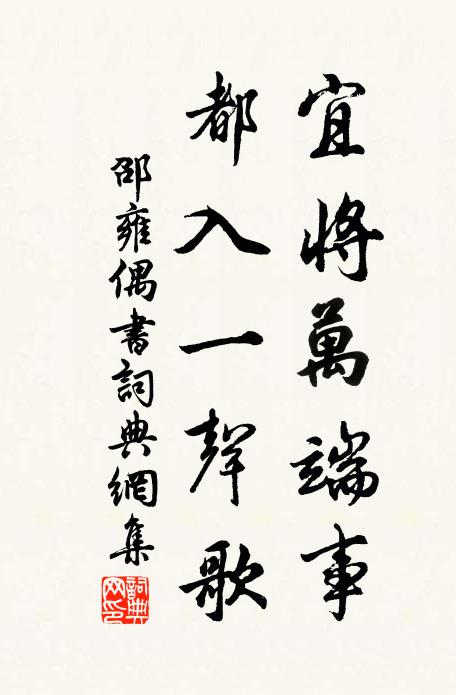 宜將萬端事
都入一聲歌
邵雍偶書詞典網集
詞典網印